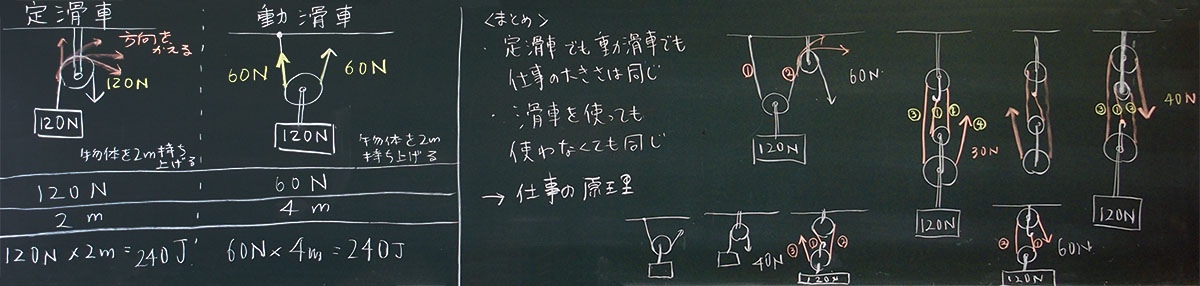 定滑車
方向を
かえる
120N
120N
物体を2m持ち
上げる
動滑車
60N
60N
120N
物体を2m
持ち上げる
120N
60N
2m
4m
120N×2m=240J
60N×4m=240J
<まとめ>
・定滑車でも動滑車でも
仕事の大きさは同じ
∴滑車を使っても
使わなくても同じ
→仕事の原理
①
②
60N
120N
③
①
②
④
30N
120N
③
①
②
40N
120N
40N
③
①
②
120N
②
①
60N
120N